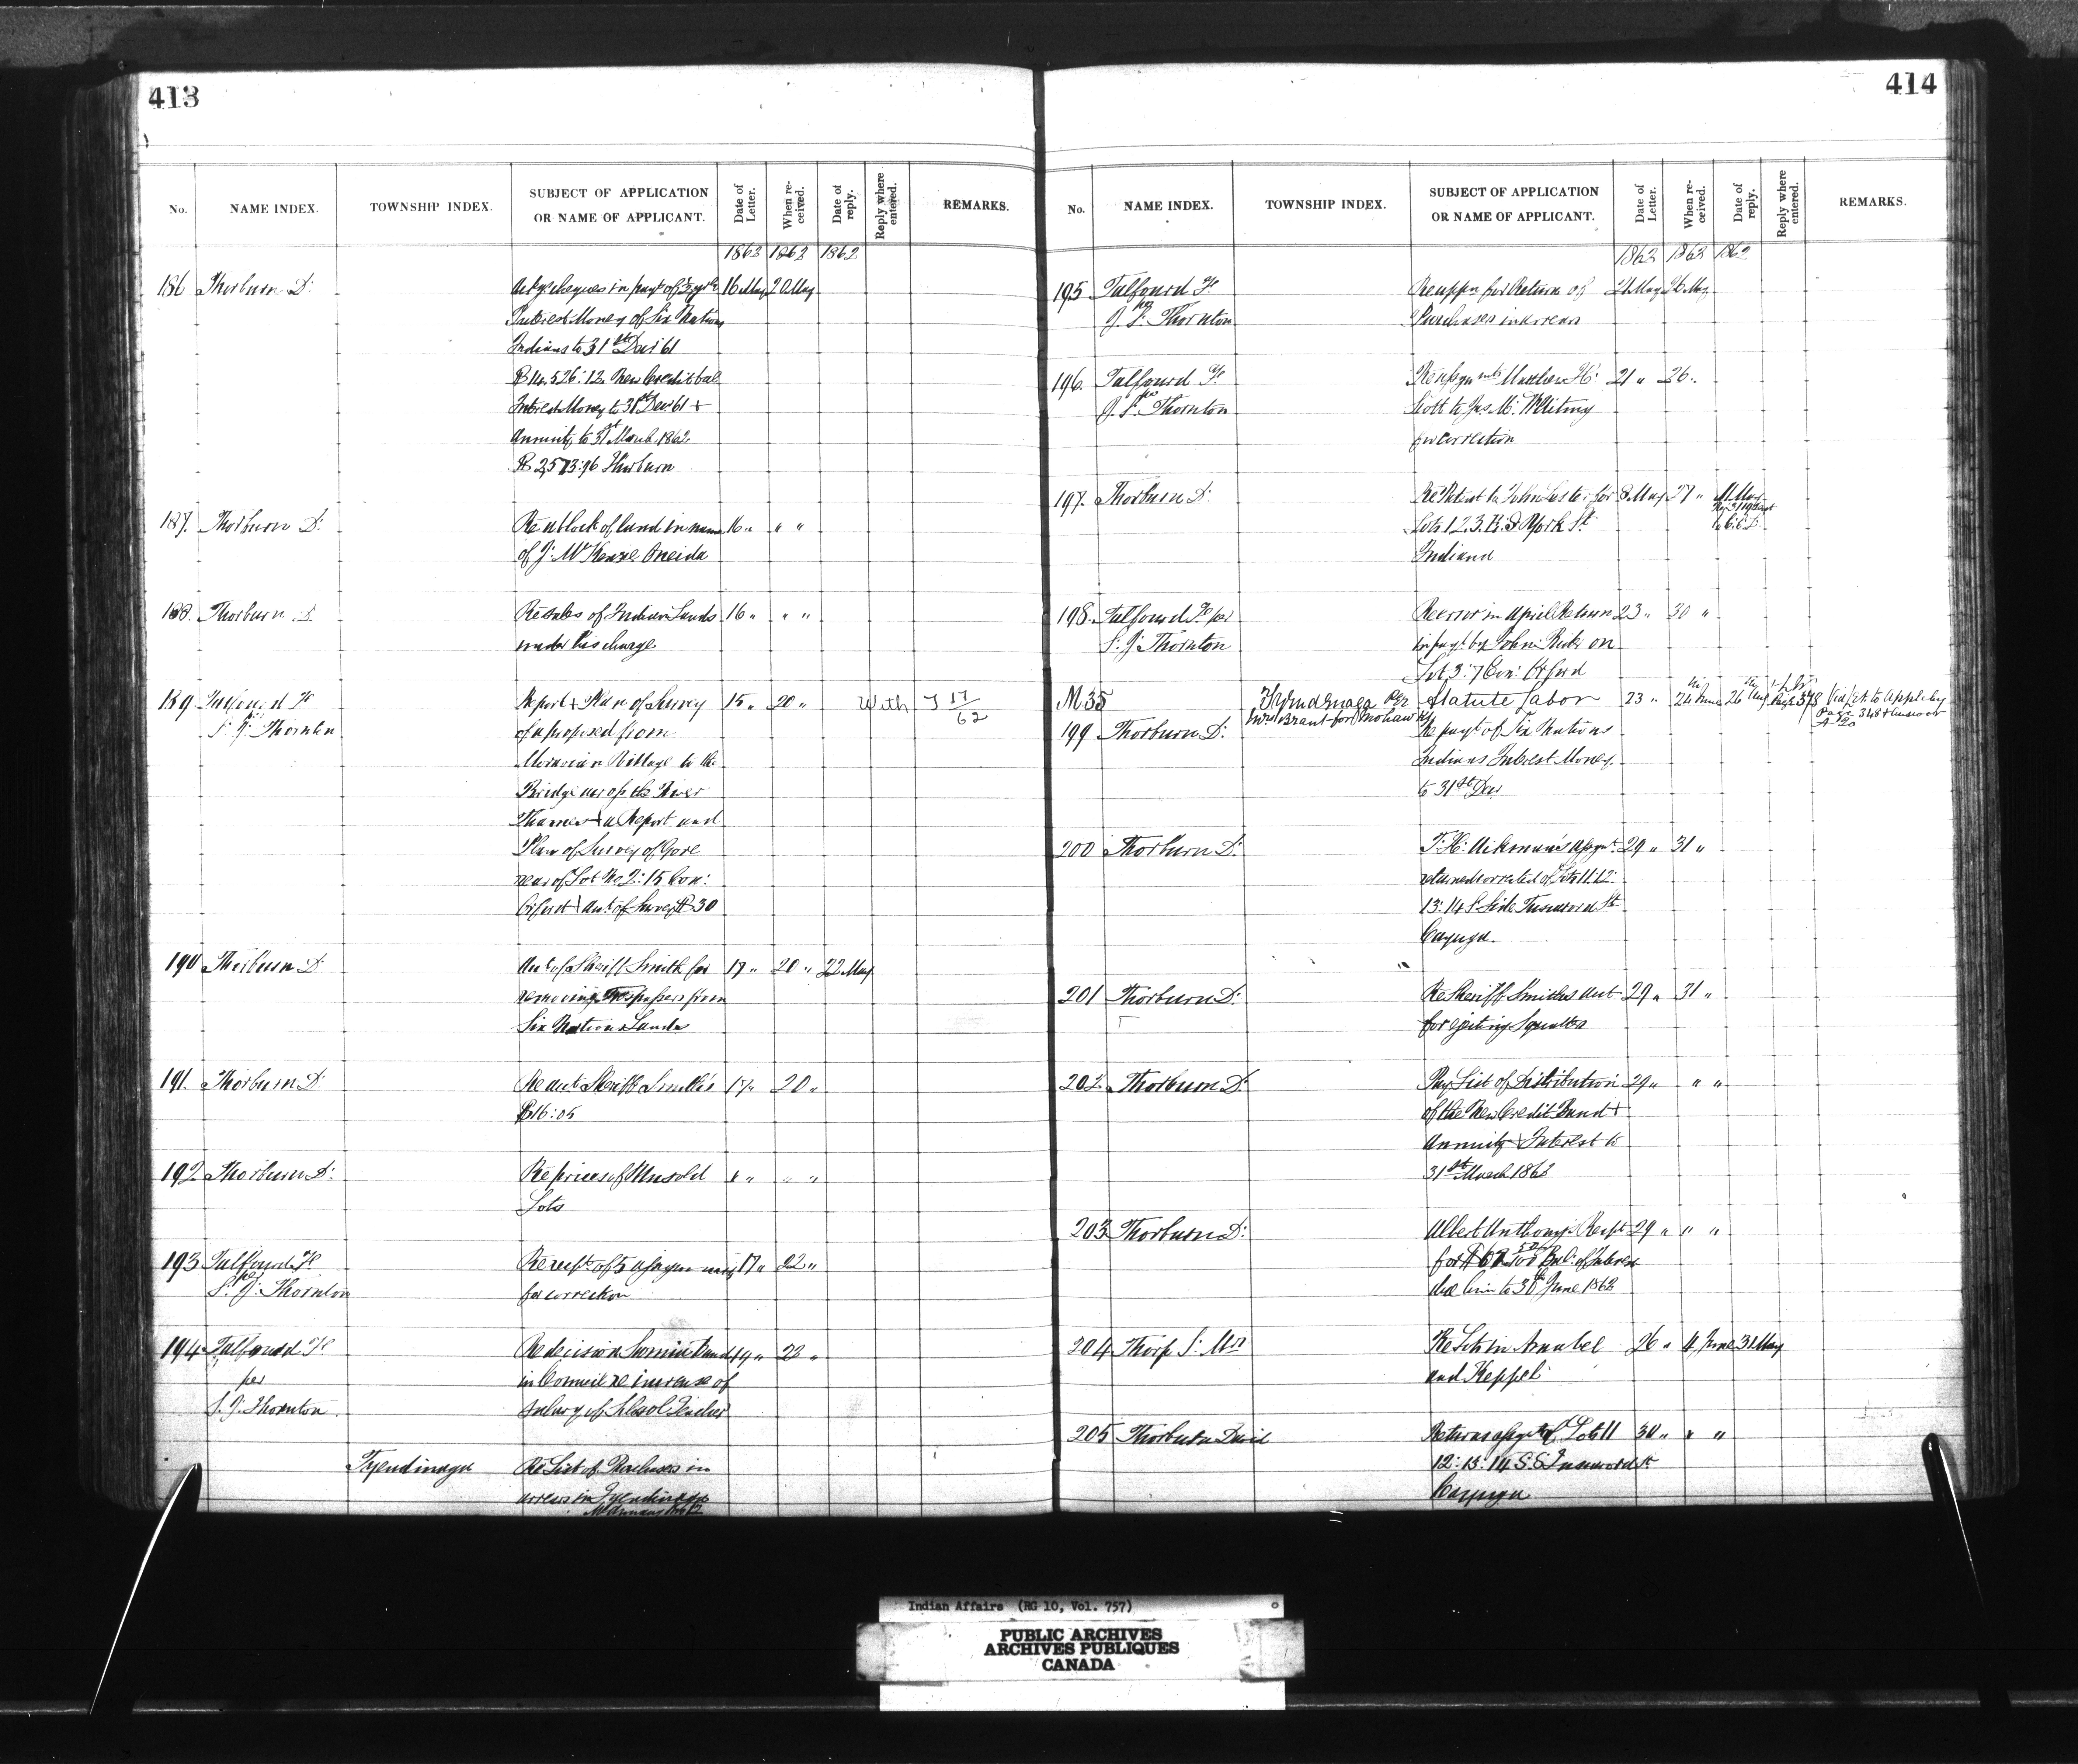 413
No. NAME INDEX. TOWNSHIP INDEX. SUBJECT OF APPLICATION OR NAME OF APPLICANT. Date of Letter. When received. Date of reply. Reply where entered. REMARKS.
1862 1862 1862
186 Thorburn D: cheques in payt of 16 May 20 May
Interest Money of Six Nations
Indians to 31st Decr 61
$14,526:12. New Credit bal
Interest Money to 31st Decr 61 +
Annuity to 31st March 1862.
$2,573:96 Thorburn
187. Thorburn D: Re a block of land in name 16 " " "
of J: McKenzie Oneida
188. Thorburn D. Re sales of Indian Lands 16 " " "
under his charge
189 Talfourd F Report + Plan of Survey 15 " 20 " With T 17/62
S. J: Thornton of a proposed from
Moravian Village to the
Bridge across the River
Thames + a Report and
Plan of Survey of Gore
rear of Lot No 2: 15 Con:
Orford + Act of Survey $30
190 Thorburn D: Act of Sheriff Smith for 17 " 20 " 22 May
removing Trespassers from
Six Nations Lands
191. Thorburn D: Re act Sheriff Smith's 17 " 20 "
$16:05
192 Thorburn D: Re prices of Unsold " " " "
Lots
193 Talfourd F Receipt of 5 17 " 22 "
per
S. J: Thornton for correction
194 Talfourd F Re decision Band 19 " 23 "
per in Council re increase of
S. J. Thornton salary of School Teacher
Tyendinaga Re List of Purchasers in
arrears in Tyendinaga
414
No. NAME INDEX. TOWNSHIP INDEX. SUBJECT OF APPLICATION OR NAME OF APPLICANT. Date of Letter. When received. Date of reply. Reply where entered. REMARKS.
1862 1862 1862
195 Talfourd F. Re appn for Return of 21 May 26 May
per
J. S. Thornton Purchasers in arrears
196. Talfourd F. Matthew H: 21 " 26 "
per
J. S. Thornton Scott to Jas M. Whitney
for correction
197. Thorburn D: Re Patent to John Lester for 8 May 27 "
Lots 1. 2. 3. York St
Indiana
198. Talfourd F. per Re error in April Return 23 " 30 "
S. J: Thornton in payt by John on
Lot 3: 7 Con: Orford
M 35 Tyendinaga Per Statute Labor 23 " 24 June 26 Page 378
Brant for Mohawks Page 348
A 20
199 Thorburn D: Re payt of Six Nations
Indians Interest Money
to 31st Decr
200 Thorburn D: T: H: Aikman's Assgnt. 29 " 31 "
returned corrected of Lots 11: 12:
13: 14 S. Side St
Cayuga.
201 Thorburn D: Re Sheriff Smiths Act 29 " 31 "
for ejecting Squatters
202 Thorburn D: Pay List of Distribution 29 " " "
of the New Credit Band +
Annuity + Interest to
31st March 1862
203 Thorburn D: Albert Anthony's Recpt 29 " " "
for Bal: of Interest
due him to 30th June 1862
204 Thorp S: Mrs Re Lots in Amabel 26 " 4 June 31 May
and Keppel
205 Thorburn David Returns of Lots 11 30 " " "
12: 13: 14 S. S. St
Cayuga
Indian Affairs (RG 10, Vol. 757)
PUBLIC ARCHIVES
ARCHIVES PUBLIQUES
CANADA